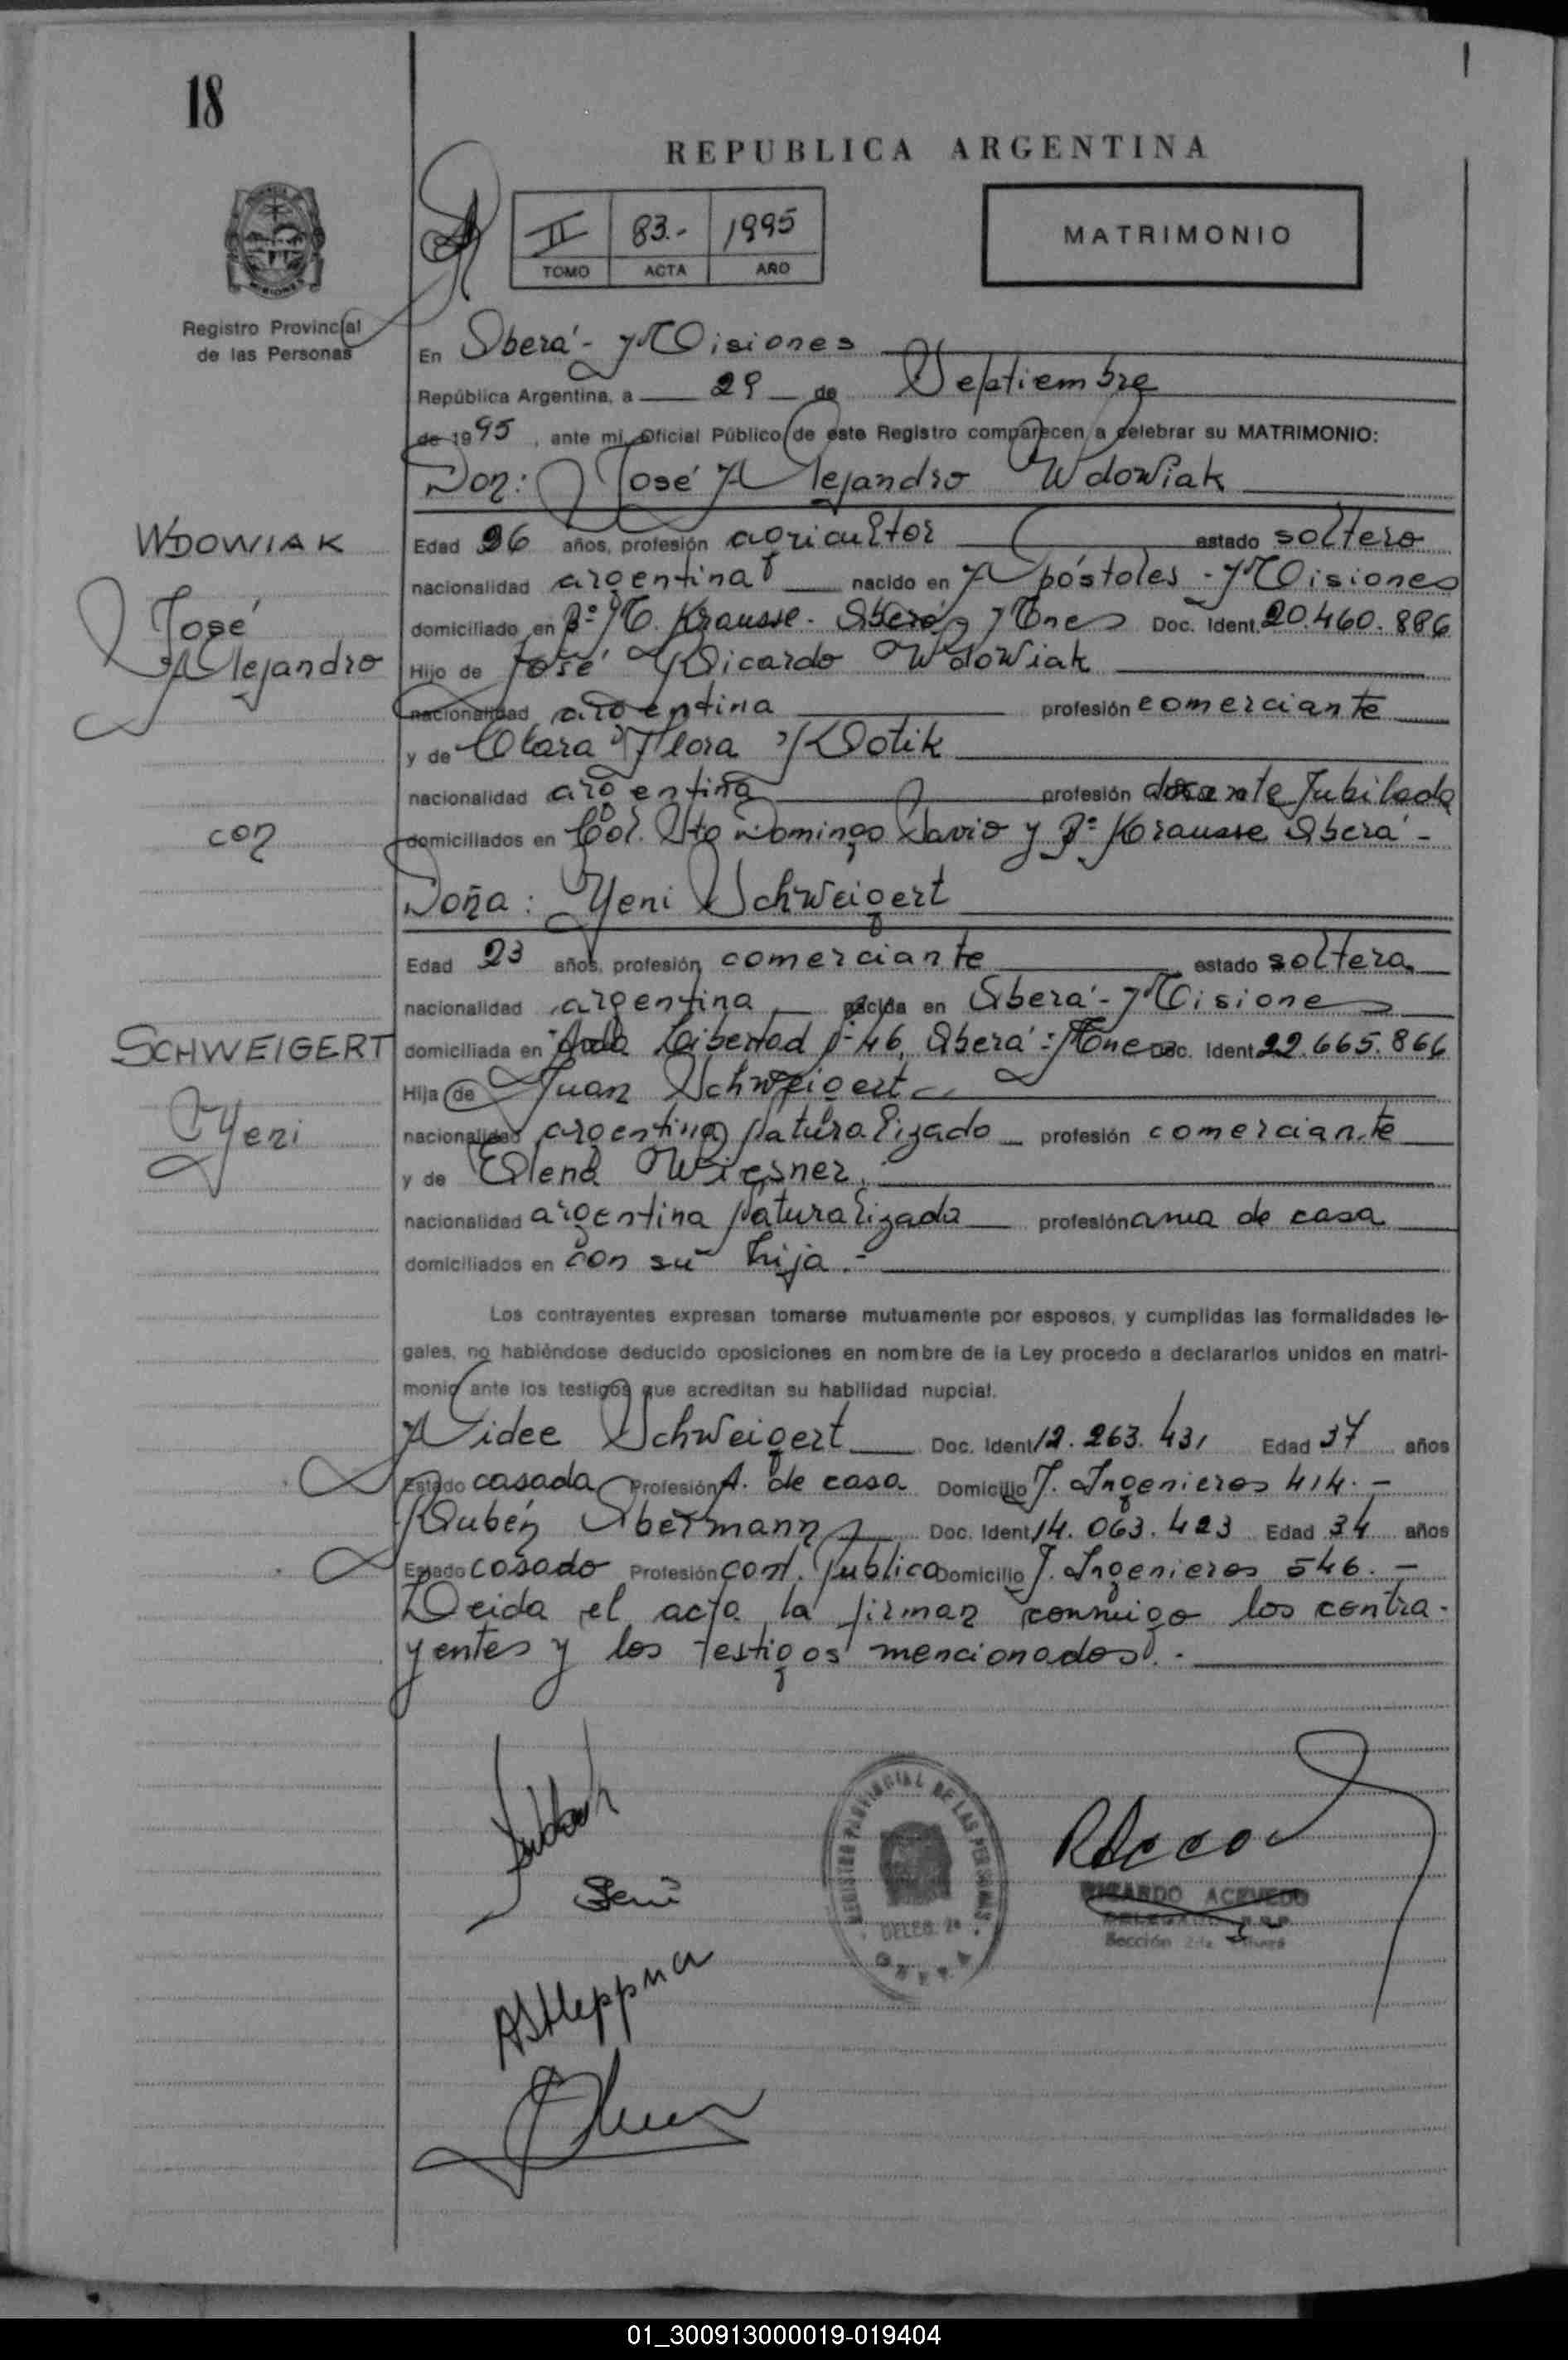 18
REPUBLICA ARGENTINA
II 83.- 1995
TOMO ACTA AÑO
MATRIMONIO
Registro Provincial
de las Personas
En Oberá - Misiones
República Argentina, a 29 de Septiembre
de 1995, ante mi, Oficial Público de este Registro comparecen a celebrar su MATRIMONIO:
Don: José Alejandro Wdowiak
WDOWIAK
José
Alejandro
Edad 26 años, profesión agricultor estado soltero
nacionalidad argentina nacido en Apóstoles - Misiones
domiciliado en Bº M. Krausse - Oberá, Mnes Doc. Ident. 20.460.886
Hijo de José Ricardo Wdowiak
nacionalidad argentina profesión comerciante
y de Clara Flora Kotik
nacionalidad argentina profesión docente Jubilada
con
domiciliados en Col. Sto Domingo Savio y Bº Krausse Oberá -
Doña: Yeni Schweigert
Edad 23 años, profesión comerciante estado soltera
nacionalidad argentina nacida en Oberá - Misiones
SCHWEIGERT
Yeni
domiciliada en Avda Libertad 46, Oberá - Mnes Doc. Ident 22.665.866
Hija de Juan Schweigert
nacionalidad argentina naturalizado profesión comerciante
y de Elena Wiesner
nacionalidad argentina naturalizada profesión ama de casa
domiciliados en con su hija.-
Los contrayentes expresan tomarse mutuamente por esposos, y cumplidas las formalidades le-
gales, no habiéndose deducido oposiciones en nombre de la Ley procedo a declararlos unidos en matri-
monio ante los testigos que acreditan su habilidad nupcial.
Aidee Schweigert Doc. Ident 12.263.431 Edad 37 años
Estado casada Profesión A. de casa Domicilio J. Ingenieros 414.-
Rubén Obermann Doc. Ident 14.063.423 Edad 34 años
Estado casado Profesión cont. Público Domicilio J. Ingenieros 546.-
Leida el acta la firman conmigo los contra-
yentes y los testigos mencionados.-
REGISTRO PROVINCIAL DE LAS PERSONAS
DELEG. 2ª
OBERA
RICARDO ACEVEDO
DELEGADO R.P.P.
Sección 2da Oberá
01_300913000019-019404